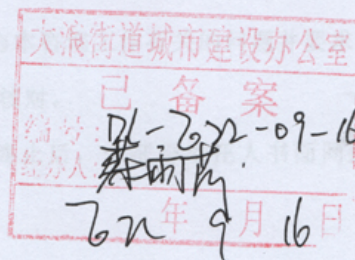 大浪街道城市建设办公室
已备案
编号：DL-2022-09-16
经办人：
2022年9月16日